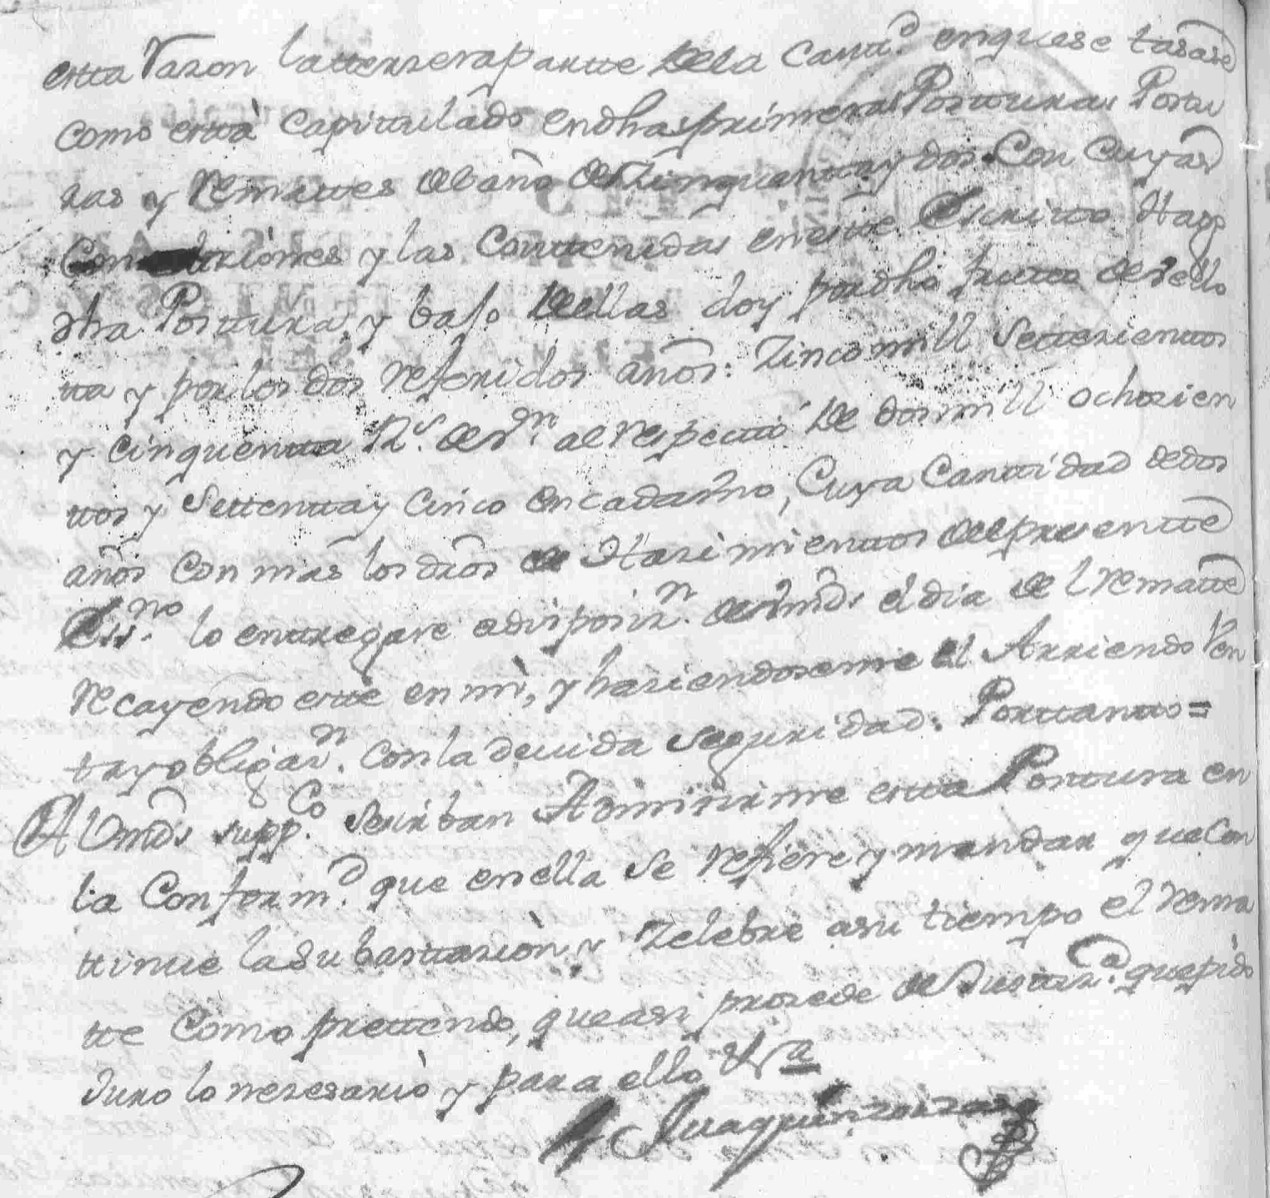 estta Razon la tterzera partte de la Cantt.d en que se tasare
como está Capittulado en dhas primeras Postturas Postu
ras y Remattes del año de Zinquentta y dos Con Cuyas
Condiziones y las Conttenidas en estte Escritto Hago
dha Posttura, y bajo de ellas doy por dho frutto de Vello
tta y por los dos referidos años: Zinco mill Settezienttos
y Cinquentta R.s de v.n al respectto de dos mill ochozien
ttos y Settentta y Cinco en cada año, Cuya Canttidad de dos
años con mas los dros de Hazimienttos del presentte
Ess.no lo enttregare a disposiz.n de Vmds el dia de el rematte
recayendo estte en mi, y haziendoseme el Arriendo Ven
ta y obligaz.n con la devida seguridad. Porttantto =
A Vmds supp.co se sirban Admitirme estta Posttura en
la Conform.d que en ella se refiere y mandar que Con
ttinue la Subasttazion y Zelebre a su tiempo el rema
tte Como prettendo, que asi prozede de Justtiz.a que pido
Juro lo nezesario y para ello &.a
Juaquin